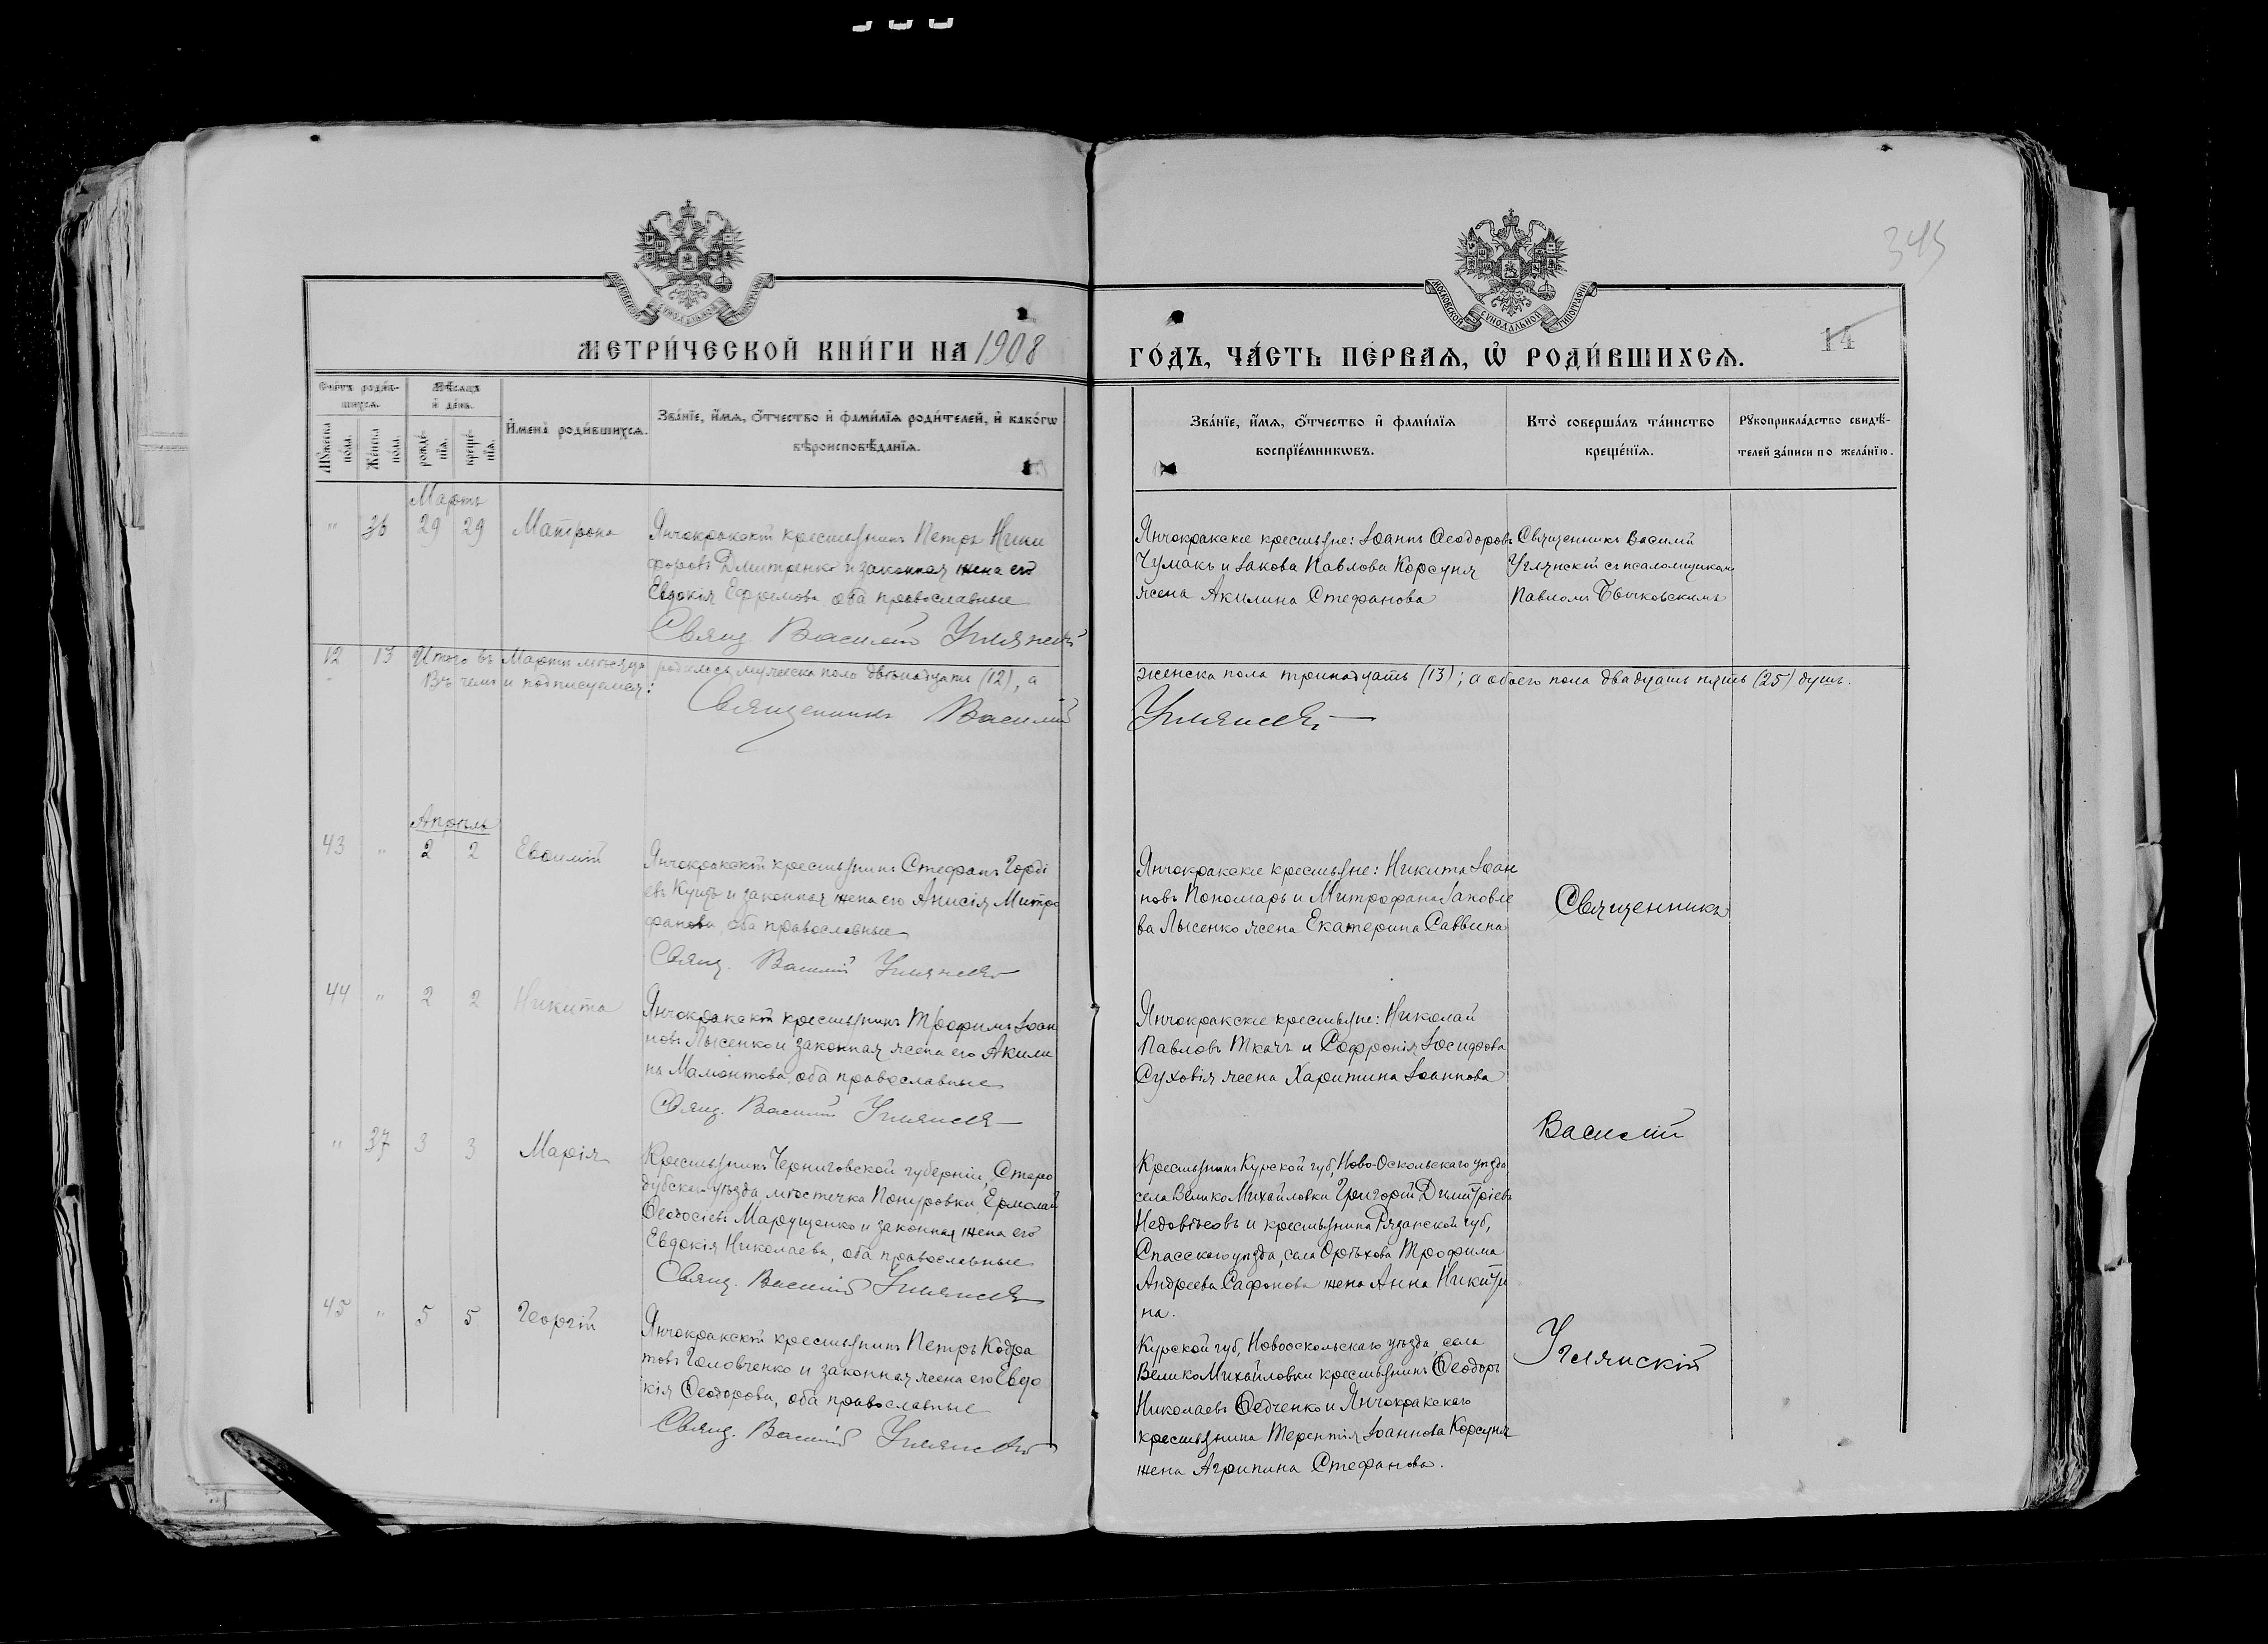 345
МОСКОВСКОЙ СѴНОДАЛЬНОЙ ТИПОГРАФІИ
МЕТРИ́ЧЕСКОЙ КНИ́ГИ НА 1908 ГО́ДЪ, ЧА́СТЬ ПЕ́РВАѦ, Ѡ҆ РОДИ́ВШИХСѦ.
14
Сче́тъ роди́в-
шихсѧ.
Мѣ́сѧцъ
и҆ де́нь.
Мꙋ́жеска
по́ла.
Же́нска
по́ла.
рожде́-
нїѧ.
креще́-
нїѧ.
И҆мена̀ роди́вшихсѧ.
Зва́нїе, и҆́мѧ, ѻ҆́тчество и҆ фами́лїѧ роди́телей, и҆ како́гѡ
вѣроисповѣ́данїѧ.
Зва́нїе, и҆́мѧ, ѻ҆́тчество и҆ фами́лїѧ
воспрїе́мникѡвъ.
Кто̀ соверша́лъ та́инство
креще́нїѧ.
Рꙋкоприкла́дство свидѣ́-
телей за́писи по жела́нїю.
Мартъ
" 36 29 29 Матрона
Янчокракскій крестьянинъ Петръ Ники
форовъ Дмитренко и законная жена его
Евдокія Ефремова оба православные
Свящ. Василій Углянскій
Янчокракскіе крестьяне: Іоаннъ Ѳеодоровъ
Чумакъ и Іакова Павлова Корсуня
жена Акилина Стефанова
Священникъ Василій
Углянскій съ псаломщикомъ
Павломъ Бычковскимъ
12 13 Итого въ Мартѣ мѣсяцѣ родилось мужеска пола двѣнадцать (12), а женска пола тринадцать (13); а обоего пола двадцать пять (25) душъ.
Въ чемъ и подписуемся:
Священникъ Василій Углянскій
Апрѣль
43 " 2 2 Евѳимій
Янчокракскій крестьянинъ Стефанъ Горді
евъ Куцъ и законная жена его Анисія Митро
фанова, оба православные
Свящ. Василій Углянскій
Янчокракскіе крестьяне: Никита Іоан
новъ Пономарь и Митрофана Іаковле
ва Лысенко жена Екатерина Саввина
Священникъ
44 " 2 2 Никита
Янчокракскій крестьянинъ Трофимъ Іоан
новъ Лысенко и законная жена его Акили
на Мамонтова, оба православные
Свящ. Василій Углянскій
Янчокракскіе крестьяне: Николай
Павловъ Ткачъ и Софронія Іосифова
Суховія жена Харитина Іоаннова
Василій
" 37 3 3 Марія
Крестьянинъ Черниговской губерніи, Старо
дубскаго уѣзда, мѣстечка Понуровки Ермолай
Ѳеодосіевъ Марущенко и законная жена его
Евдокія Николаева, оба православные
Свящ. Василій Углянскій
Крестьянинъ Курской губ, Ново-Оскольскаго уѣзда
села Велико Михайловки Григорій Димитріевъ
и крестьянина Рязанской губ,
Спасскаго уѣзда, села Орѣхова Трофима
Андреева Сафонова жена Анна Никити
на.
45 " 5 5 Георгій
Янчокракскій крестьянинъ Петръ Кодра
товъ Головченко и законная жена его Евдо
кія Ѳеодорова, оба православные
Свящ. Василій Углянскій
Курской губ, Новооскольскаго уѣзда, села
Велико Михайловки крестьянинъ Ѳеодоръ
Николаевъ Ѳедченко и Янчокракскаго
крестьянина Терентія Іоаннова Корсуня
жена Агрипина Стефанова.
Углянскій